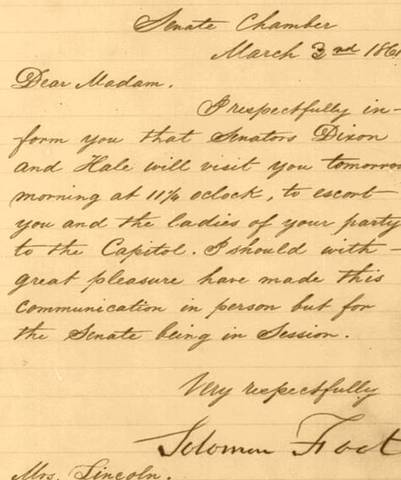 Senate Chamber
March 3nd 1861
Dear Madam.
I respectfully in-
form you that Senators Dixon
and Hale will visit you tomorrow
morning at 11¼ oclock, to escort
you and the ladies of your party
to the Capitol. I should with-
great pleasure have made this
communication in person but for
the Senate being in Session.
Very respectfully
Solomon Foot
Mrs. Lincoln.